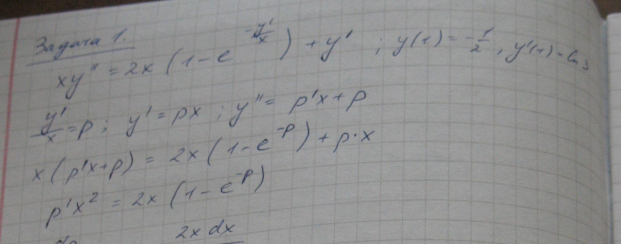 Задача 1.
xy'' = 2x (1 - e^{-y'/x}) + y' ; y(1) = -1/2, y'(1) = ln 3
y'/x = p ; y' = px ; y'' = p'x + p
x (p'x + p) = 2x (1 - e^{-p}) + p·x
p'x² = 2x (1 - e^{-p})
2x dx